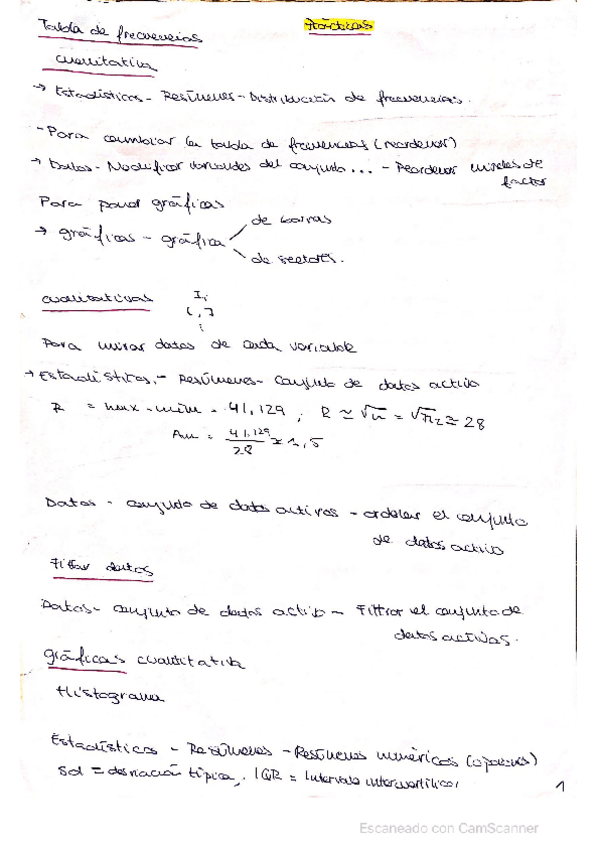 Prácticas
Tabla de frecuencias
cualitativa
→ Estadísticos - Resúmenes - Distribución de frecuencias.
- Para cambiar la tabla de frecuencias (reordenar)
→ Datos - Modificar variables del conjunto... - Reordenar niveles de
factor
Para poner gráficas
de barras
→ gráficas - gráfica
de sectores.
Ii
[ , )
Para mirar datos de cada variable
→ Estadísticos, - Resúmenes - Conjunto de datos activo
R = max - min = 41,129 ; k ≃ √n =
≃ 28
Am = 41,129 / 28 ≃ 1,5
Datos - conjunto de datos activos - ordenar el conjunto
de datos activo
Filtrar datos
Datos - conjunto de datos activo - Filtrar el conjunto de
datos activos.
gráficas cuantitativa
Histograma
Estadísticos - Resúmenes - Resúmenes numéricos (opciones)
Sd = desviación típica, IQR = Intervalo intercuartílico,
1
Escaneado con CamScanner